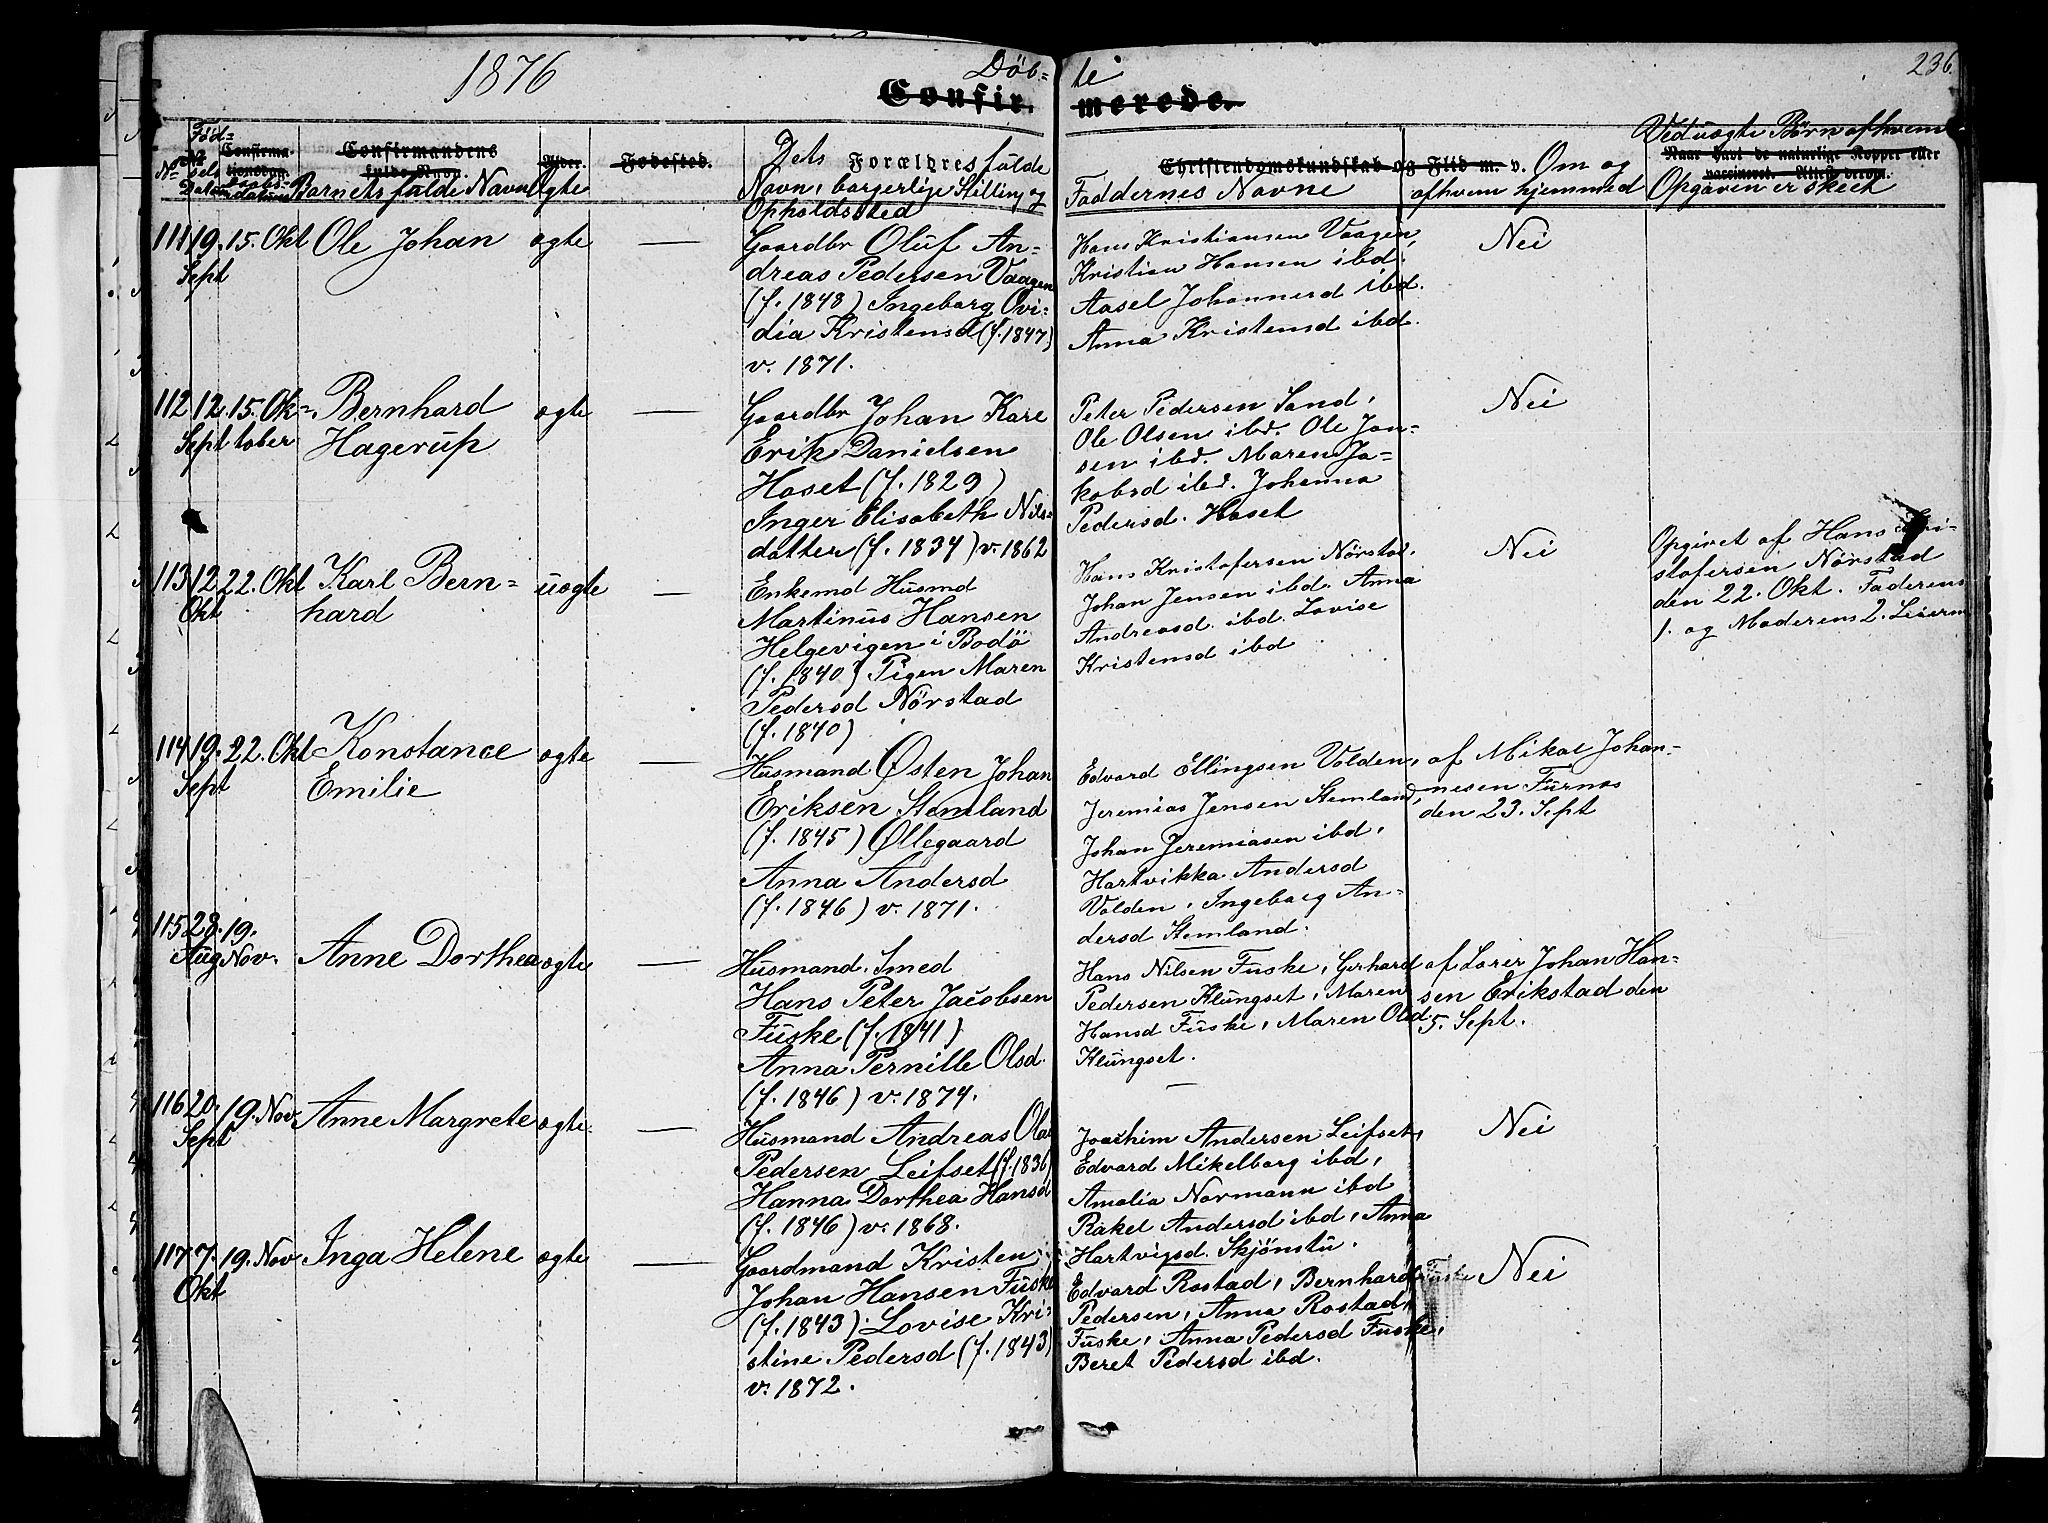 1876
Döb=
te
236.
Confir.
merede.
Ved uægte Børn af hvem
Opgaven er skeet
Fød=
sels
Datum
No
Confirma-
tionsdag.
Daabs-
datum
Confirmandens
fulde Navn.
Barnets fulde Navn
Alder.
Ægte
Fødested.
Dets Forældres fulde
Navn, borgerlige Stilling og
Opholdssted
Christendomskundskab og Flid m. v.
Faddernes Navne
Om og
af hvem hjemmed
Naar havt de naturlige Kopper eller
vaccineret. Attest derom.
111 19. 15. Okt Ole Johan ægte —
Sept
Gaardbr Oluf An=
dreas Pedersen Vaagen
(f. 1848) Ingeborg Ovi-
dia Kristensd (f. 1847)
v. 1871.
Hans Kristiansen Vaagen,
Kristian Hansen ibd,
Aasel Johannesd ibd.
Anna Kristensd ibd.
Nei
112 12. 15. Ok= Bernhard ægte —
Sept tober Hagerup
Gaardbr Johan Kare
Erik Danielsen
Hoset (f. 1829)
Inger Elisabeth Nils=
datter (f. 1834) v. 1862
Peter Pedersen Sand,
Ole Olsen ibd. Ole Jen=
sen ibd. Maren Ja=
kobsd ibd. Johanna
Pedersd. Hoset
Nei
113 12 22. Okt Karl Bern= uægte —
Okt hard
Enkemd Husmd
Martinus Hansen
Helgevigen i Bodö
(f. 1840) Pigen Maren
Pedersd Nörstad
(f. 1840)
Hans Kristofersen Nörstad.
Johan Jensen ibd. Anna
Andreasd. ibd. Lovise
Kristensd ibd
Nei
Opgivet af Hans Kri-
stofersen Nörstad
den 22. Okt. Faderens
1. og Moderens 2. Leierm
114 19. 22. Okt Konstance ægte —
Sept Emilie
Husmand Østen Johan
Eriksen Stemland
(f. 1845) Øllegaard
Anna Andersd
(f. 1846) v. 1871.
Edvard Ellingsen Volden,
Jeremias Jensen Stemland,
Johan Jeremiasen ibd,
Hartvikka Andersd
Volden, Ingeborg An=
dersd Stemland.
af Mikal Johan=
nesen Furnes
den 23. Sept
115 28. 19. Anne Dorthea ægte —
Aug Nov.
Husmand. Smed
Hans Peter Jacobsen
Fuske (f. 1841)
Anna Pernille Olsd.
(f. 1846) v. 1874.
Hans Nilsen Fuske, Gerhard
Pedersen Klungset, Maren
Hansd Fuske, Maren Olsd.
Klungset.
af Lærer Johan Han=
sen Erikstad den
5. Sept.
116 20. 19. Nov Anne Margrete ægte. —
Sept
Husmand Andreas Olai
Pedersen Leifset (f. 1836)
Hanna Dorthea Hansd
(f. 1846) v. 1868.
Joachim Andersen Leifset,
Edvard Mikelborg ibd,
Amalia Normann ibd
Rakel Andersd ibd, Anna
Hartvigsd. Skjönstu.
Nei
117 7. 19. Nov Inga Helene ægte —
Okt
Gaardmand Kristen
Johan Hansen Fuske
(f. 1843). Lovise Kri-
stine Pedersd (f. 1843)
v. 1872.
Edvard Rostad, Bernhard Fuske
Pedersen, Anna Rostad,
Fuske, Anna Pedersd Fuske,
Beret Pedersd ibd.
Nei